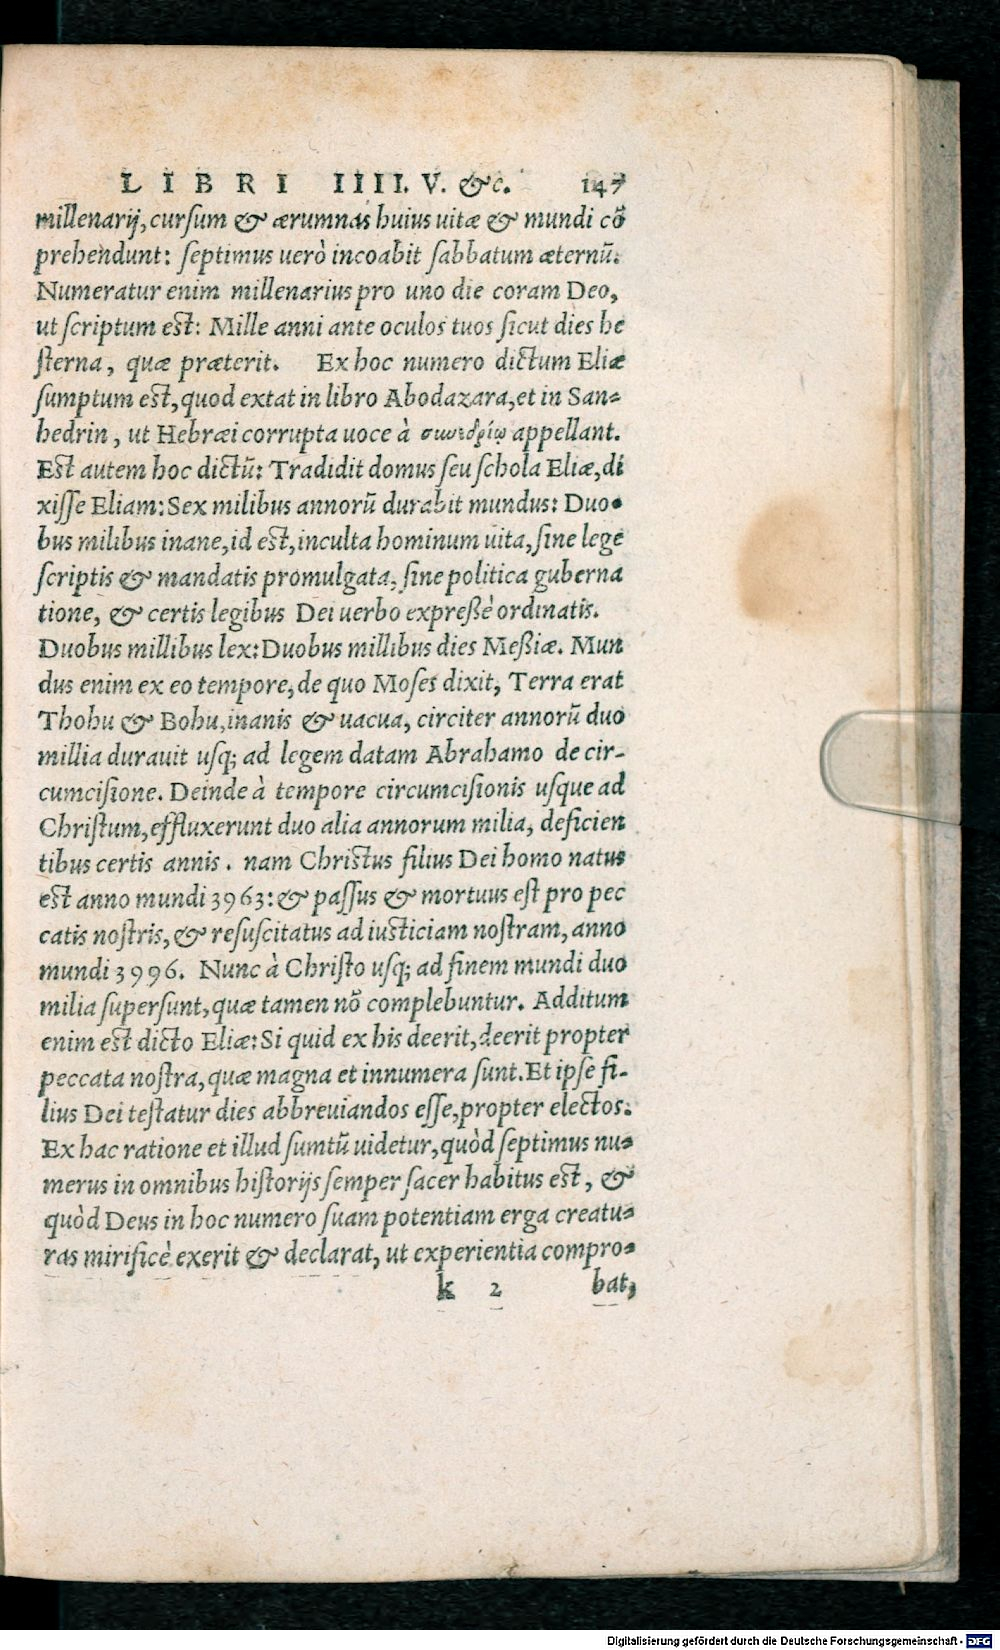 LIBRI IIII. V. &c. 147
millenarij, cursum & ærumnas huius uitæ & mundi cõ
prehendunt: septimus uerò incoabit sabbatum æternũ.
Numeratur enim millenarius pro uno die coram Deo,
ut scriptum est: Mille anni ante oculos tuos sicut dies he
sterna, quæ præterit. Ex hoc numero dictum Eliæ
sumptum est, quod extat in libro Abodazara, et in San-
hedrin, ut Hebræi corrupta uoce à συνεδρίῳ appellant.
Est autem hoc dictũ: Tradidit domus seu schola Eliæ, di
xisse Eliam: Sex milibus annorũ durabit mundus: Duo-
bus milibus inane, id est, inculta hominum uita, sine lege
scriptis & mandatis promulgata, sine politica guberna
tione, & certis legibus Dei uerbo expreßè ordinatis.
Duobus millibus lex: Duobus millibus dies Meßiæ. Mun
dus enim ex eo tempore, de quo Moses dixit, Terra erat
Thohu & Bohu, inanis & uacua, circiter annorũ duo
millia durauit usq; ad legem datam Abrahamo de cir-
cumcisione. Deinde à tempore circumcisionis usque ad
Christum, effluxerunt duo alia annorum milia, deficien
tibus certis annis. nam Christus filius Dei homo natus
est anno mundi 3963: & passus & mortuus est pro pec
catis nostris, & resuscitatus ad iusticiam nostram, anno
mundi 3996. Nunc à Christo usq; ad finem mundi duo
milia supersunt, quæ tamen nõ complebuntur. Additum
enim est dicto Eliæ: Si quid ex his deerit, deerit propter
peccata nostra, quæ magna et innumera sunt. Et ipse fi-
lius Dei testatur dies abbreuiandos esse, propter electos.
Ex hac ratione et illud sumtũ uidetur, quòd septimus nu-
merus in omnibus historijs semper sacer habitus est, &
quòd Deus in hoc numero suam potentiam erga creatu-
ras mirificè exerit & declarat, ut experientia compro-
k 2 bat,
Digitalisierung gefördert durch die Deutsche Forschungsgemeinschaft - DFG